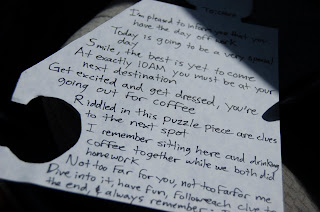 I'm pleased to inform you that you
have the day off work
Today is going to be a very special
day
Smile, the best is yet to come
At exactly 10AM you must be at your
next destination
Get excited and get dressed, you're
going out for coffee
Riddled in this puzzle piece are clues
to the next spot
I remember sitting here and drinking
coffee together while we both did
homework
Not too far for you, not too far for me
Dive into it, have fun, follow each clue to
the end, & always remember